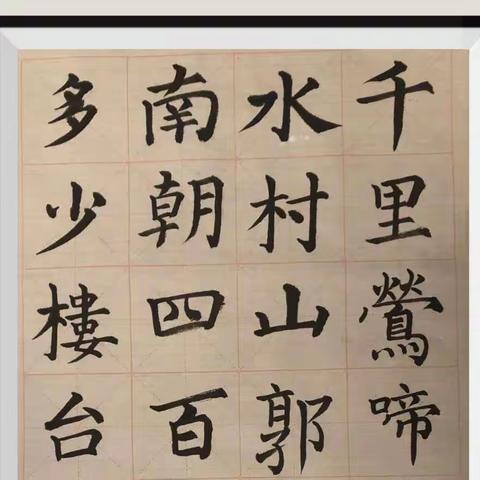 千里鶯啼
水村山郭
南朝四百
多少樓台